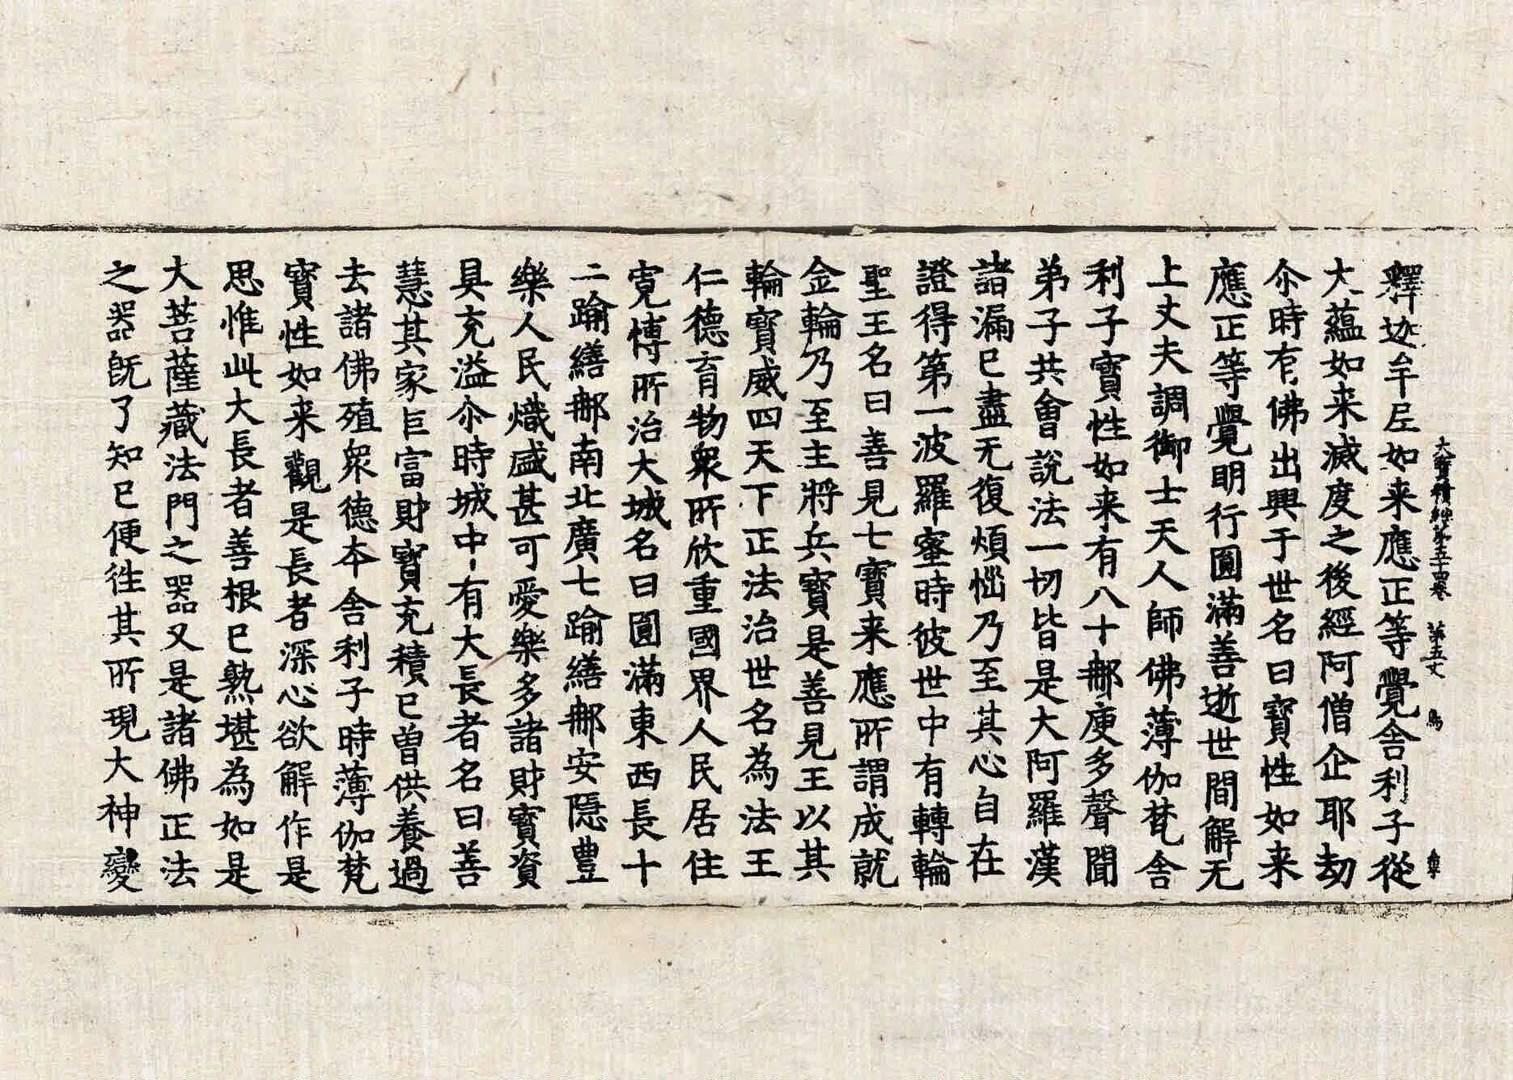 大寶積經第五十四卷 第五丈 鳥
釋迦牟尼如来應正等覺舍利子從
大蘊如来滅度之後經阿僧企耶劫
尒時有佛出興于世名曰寶性如来
應正等覺明行圓滿善逝世間解无
上丈夫調御士天人師佛薄伽梵舍
利子寶性如来有八十那庾多聲聞
弟子共會說法一切皆是大阿羅漢
諸漏已盡无復煩惱乃至其心自在
證得第一波羅蜜時彼世中有轉輪
聖王名曰善見七寶来應所謂成就
金輪乃至主將兵寶是善見王以其
輪寶威四天下正法治世名為法王
仁德育物衆所欣重國界人民居住
寬博所治大城名曰圓滿東西長十
二踰繕那南北廣七踰繕那安隱豊
樂人民熾盛甚可愛樂多諸財寶資
具充溢尒時城中有大長者名曰善
慧其家巨富財寶充積已曾供養過
去諸佛殖衆德本舍利子時薄伽梵
寶性如来觀是長者深心欲解作是
思惟此大長者善根已熟堪為如是
大菩薩藏法門之器又是諸佛正法
之器既了知已便往其所現大神變